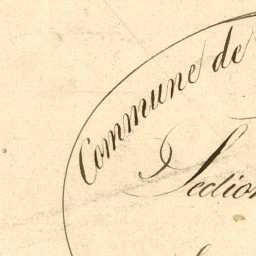 Commune de
Section